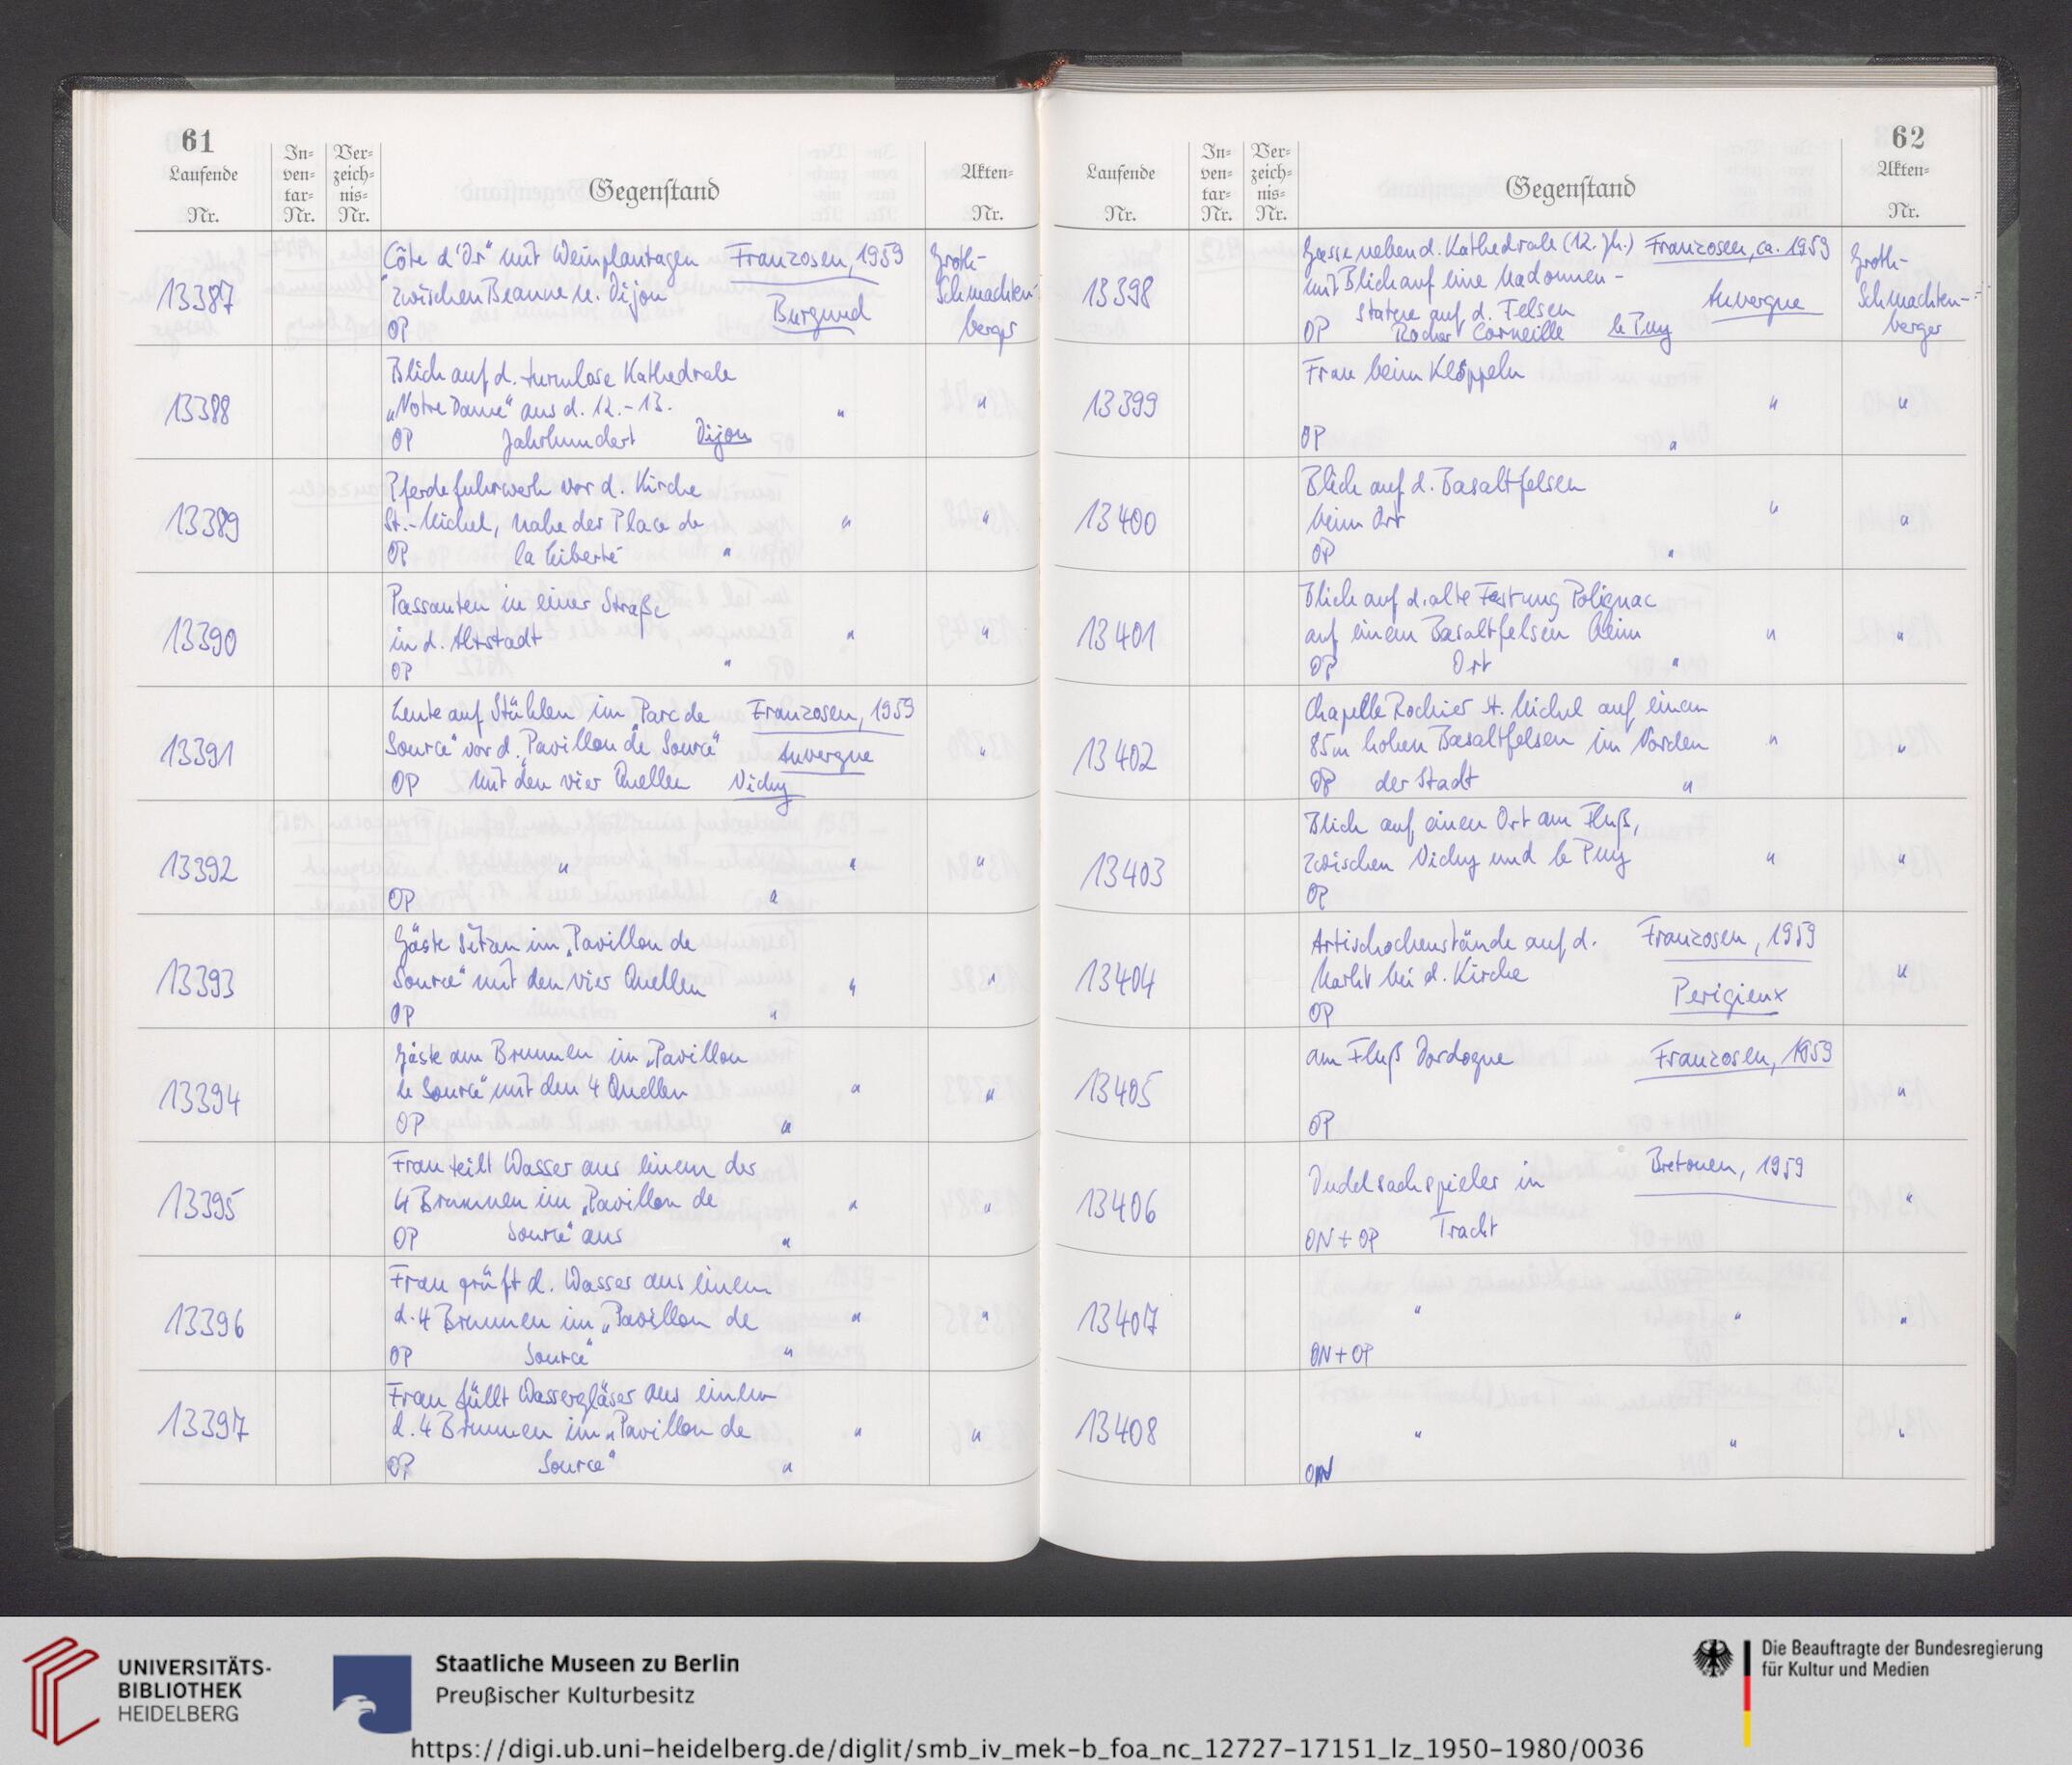 61
Laufende Nr.
In-ven-tar-Nr.
Ver-zeich-nis-Nr.
Gegenstand
Akten-Nr.
13387
Côte d'Or" mit Weinplantagen Franzosen, 1959
zwischen Beaune u. Dijon
Burgund
OP
Groth-
Schmachten-
berger
13388
Blick auf d. turmlose Kathedrale
„Notre Dame" aus d. 12.-13. " "
OP Jahrhundert Dijon
13389
Pferdefuhrwerk vor d. Kirche
St.-Michel, nahe der Place de " "
OP la Liberté "
13390
Passanten in einer Straße
in d. Altstadt " "
OP "
13391
Leute auf Stühlen im „Parc de Franzosen, 1959
Source" vor d. „Pavillon de Source" Auvergne "
OP mit den vier Quellen Vichy
13392
" " "
OP "
13393
Gäste sitzen im „Pavillon de
Source" mit den vier Quellen " "
OP "
13394
Gäste am Brunnen im „Pavillon
de Source" mit den 4 Quellen " "
OP "
13395
Frau teilt Wasser aus einem der
4 Brunnen im „Pavillon de " "
OP Source" aus "
13396
Frau prüft d. Wasser aus einem
d. 4 Brunnen im „Pavillon de " "
OP Source" "
13397
Frau füllt Wassergläser aus einem
d. 4 Brunnen im „Pavillon de " "
OP Source" "
62
Laufende Nr.
In-ven-tar-Nr.
Ver-zeich-nis-Nr.
Gegenstand
Akten-Nr.
13398
Gasse neben d. Kathedrale (12. Jh.) Franzosen, ca. 1959
mit Blick auf eine Madonnen-
statue auf d. Felsen Auvergne
OP Rocher Corneille le Puy
Groth-
Schmachten-
berger
13399
Frau beim Klöppeln
" "
OP "
13400
Blick auf d. Basaltfelsen
beim Ort " "
OP "
13401
Blick auf d. alte Festung Polignac
auf einem Basaltfelsen beim " "
OP Ort "
13402
Chapelle Rochier St. Michel auf einem
85m hohen Basaltfelsen im Norden " "
OP der Stadt "
13403
Blick auf einen Ort am Fluß,
zwischen Vichy und le Puy " "
OP
13404
Artischockenstände auf d. Franzosen, 1959
Markt bei d. Kirche "
Perigieux
OP
13405
am Fluß Dordogne Franzosen, 1959
"
OP
13406
Dudelsackspieler in Bretonen, 1959
"
ON + OP Tracht
13407
" " "
ON + OP
13408
" " "
ON
UNIVERSITÄTS-
BIBLIOTHEK
HEIDELBERG
Staatliche Museen zu Berlin
Preußischer Kulturbesitz
Die Beauftragte der Bundesregierung
für Kultur und Medien
https://digi.ub.uni-heidelberg.de/diglit/smb_iv_mek-b_foa_nc_12727-17151_lz_1950-1980/0036